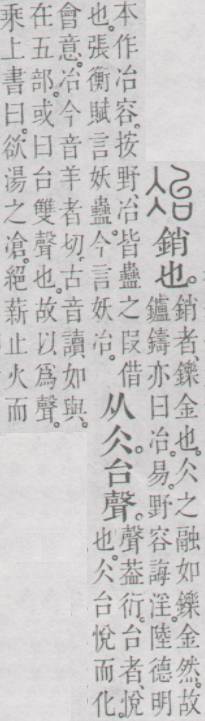 銷也。
銷者、鑠金也。仌之融如鑠金然。故
鑪鑄亦曰冶。易。野容誨淫。陸德明
本作冶容。按野、冶皆蠱之叚借
也。張衡賦言妖蠱。今言妖冶。
从仌。台聲。
聲葢衍。台者、悅
也。仌台悅而化
會意。冶今音羊者切。古音讀如與。
在五部。或曰台雙聲也。故以爲聲。
乘上書曰。欲湯之凔。絕薪止火而